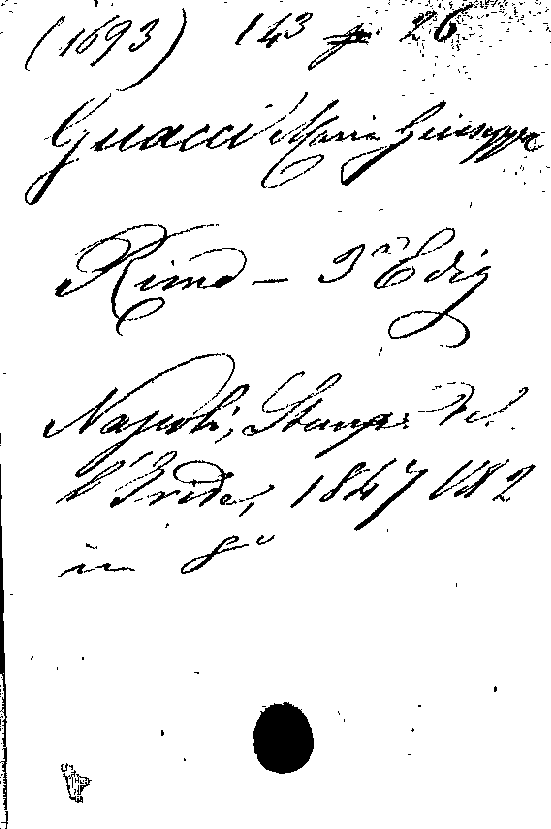 (1693) 143 26
Guacci Maria Giuseppa
Rime – 3ª Ediz
Napoli, Stamp. del
l'Iride, 1847 Vol 2
in 8º